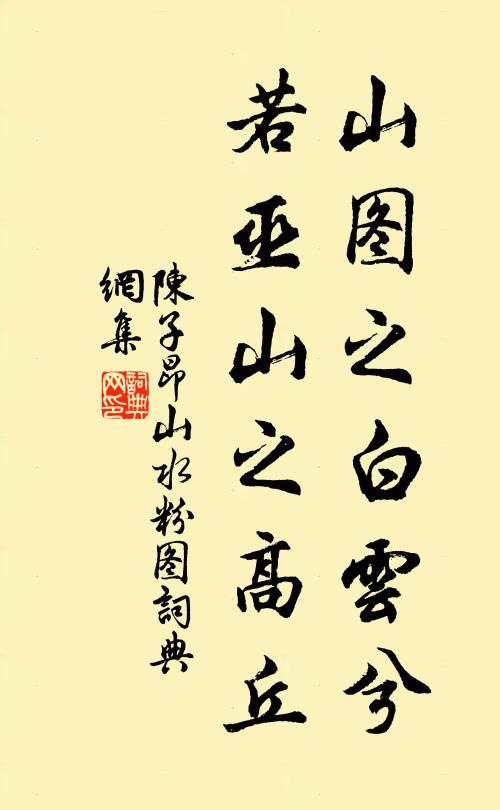 山图之白雲兮
若巫山之高丘
陳子昂山水粉图詞典
網集
詞典
网印